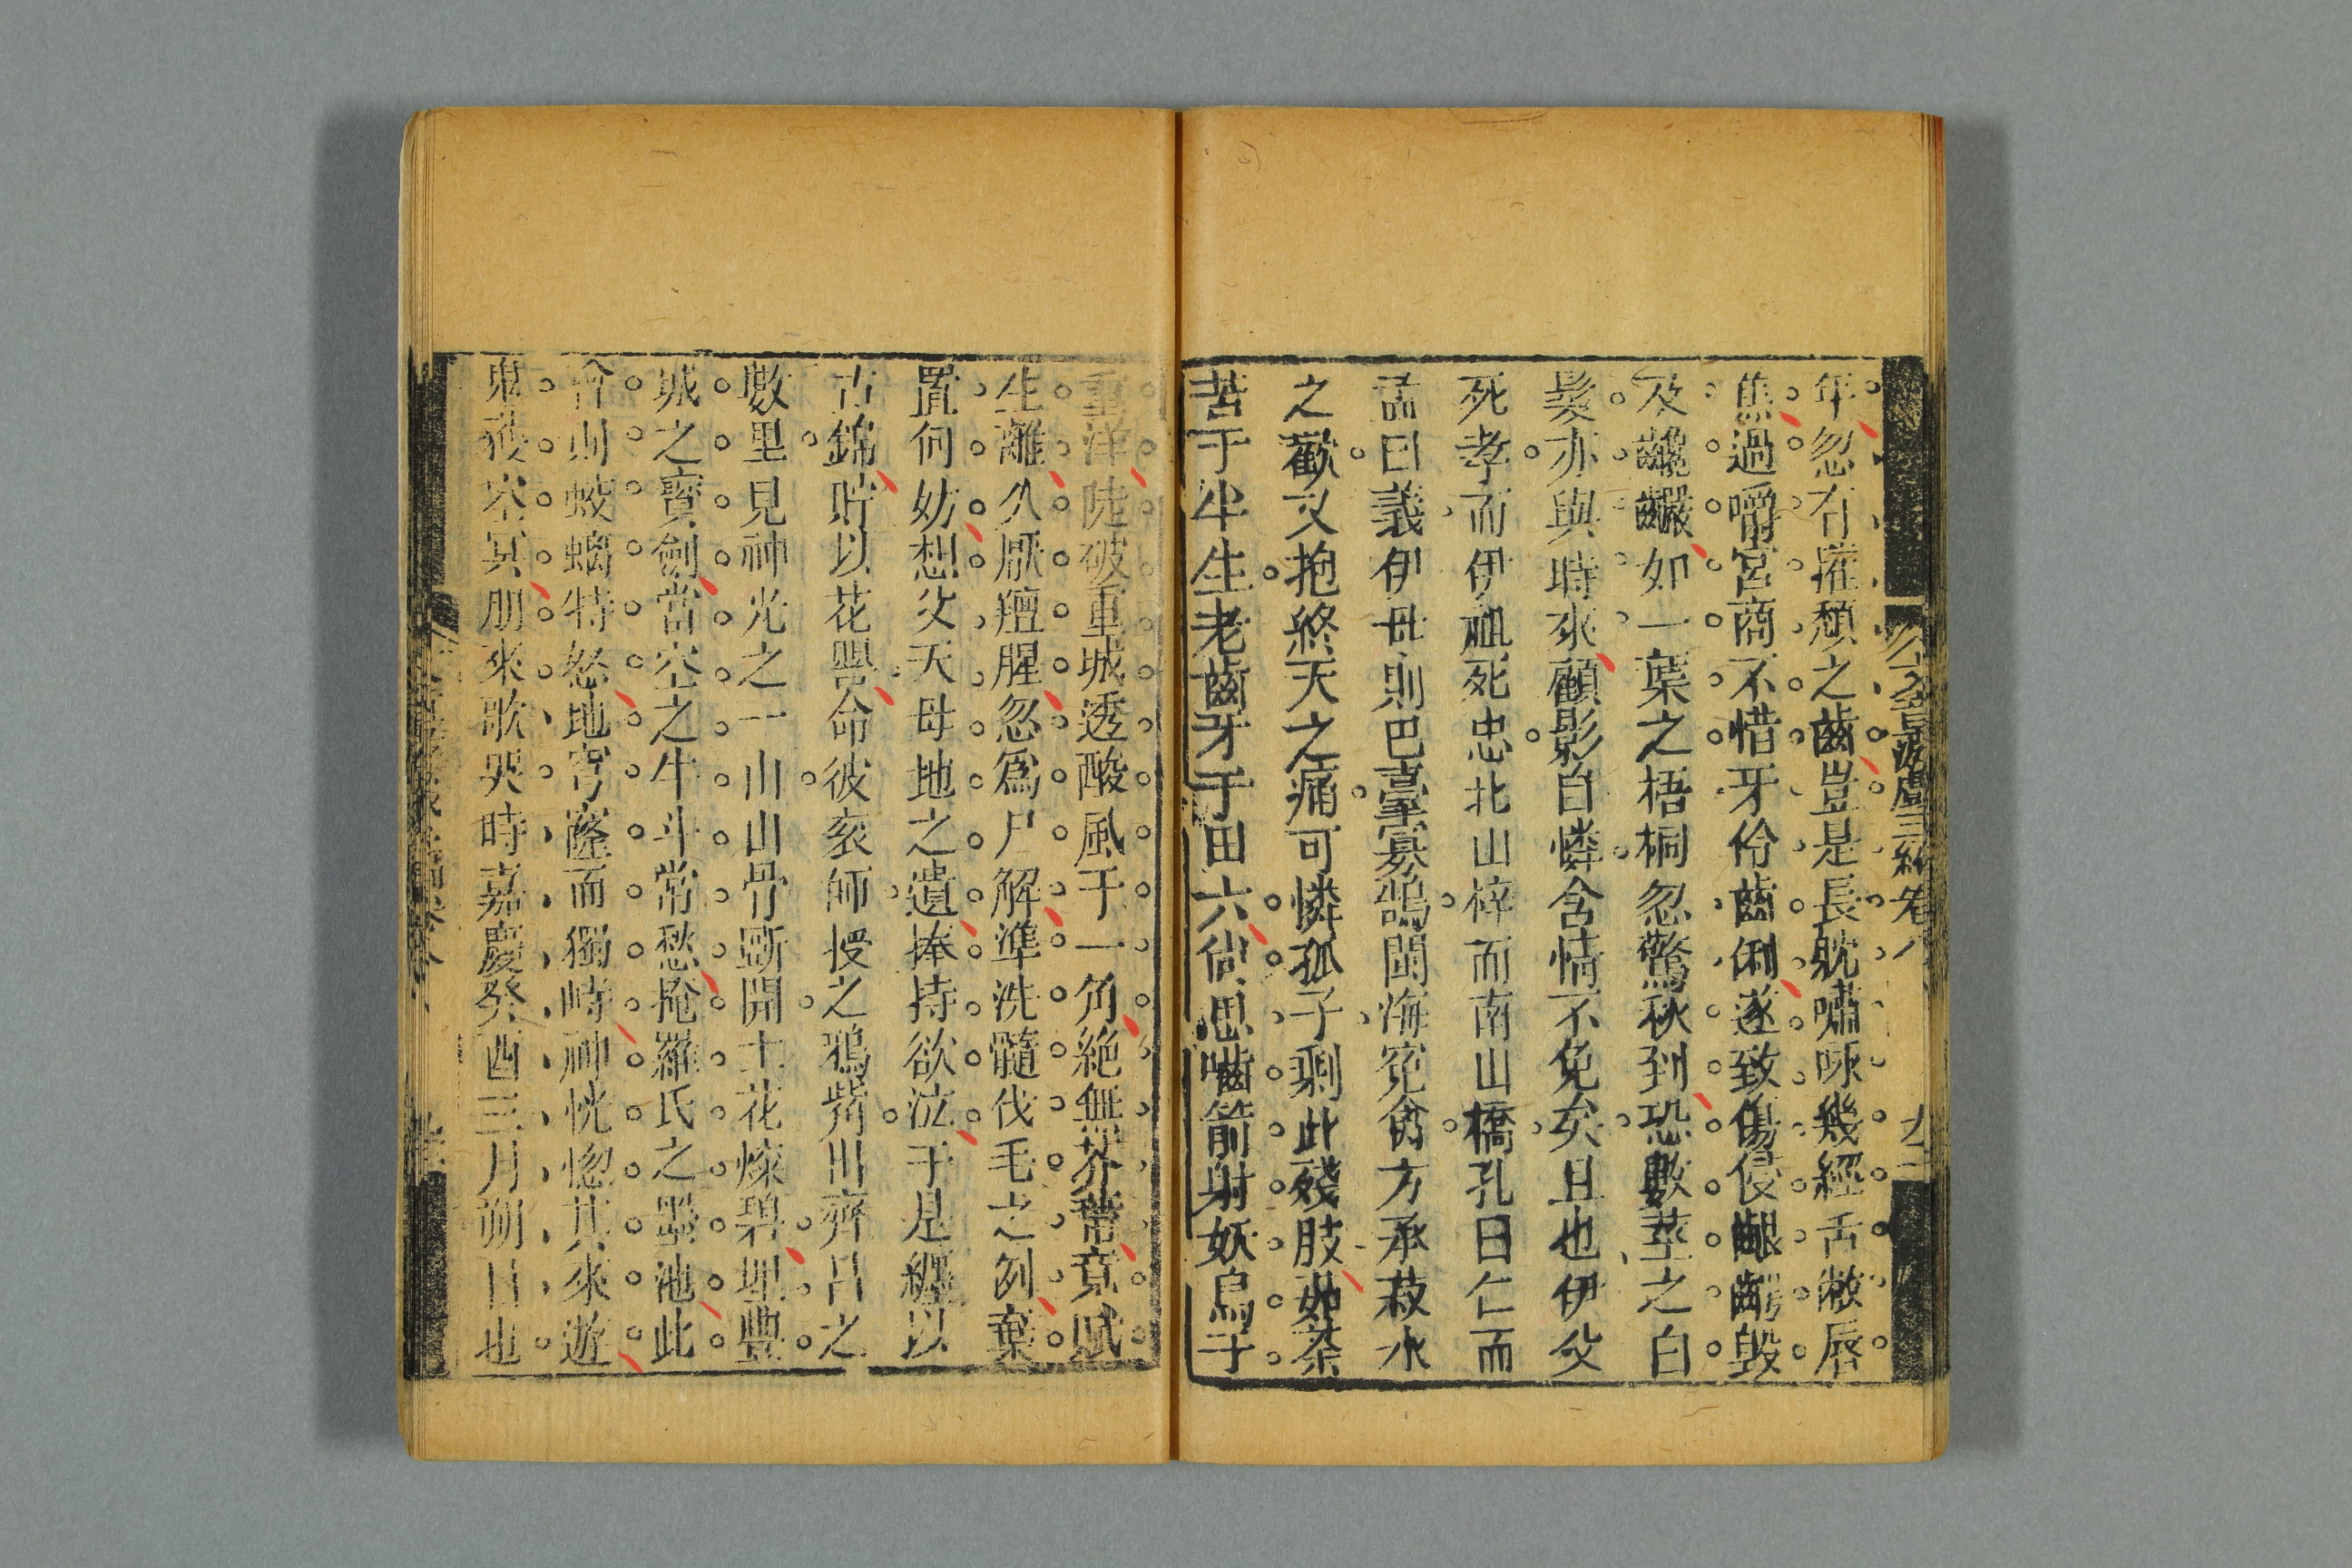 年忽有摧頽之齒豈是長躭嘯咏幾經舌敝唇
焦過嚼宮商不惜牙伶齒俐遂致傷侵齦齶毀
及齯如一葉之梧桐忽驚秋到恐數莖之白
髮亦與時來顧影自憐含情不免矣且也伊父
死孝而伊祖死忠北山梓而南山橋孔曰仁而
孟曰義伊母則巴臺寡鵠閩海寃禽方承菽水
之歡又抱終天之痛可憐孤子剩此殘肢茹荼
苦于半生老齒牙于田六尙思嚙箭射妖烏子
重洋陡破重城透酸風于一角絶無芥蔕竟賦
生離久厭羶腥忽爲尸解準洗髓伐毛之例棄
置何妨想父天母地之遺捧持欲泣于是經以
古錦貯以花甖命彼衮師授之鴉觜出齊呂之
數里見神光之一山山骨斲開土花燦碧埋豐
城之寶劍當空之牛斗常愁掩羅氏之墨池此
會則蛟螭特怒地穹窿而獨峙神恍惚其來遊
鬼護空冥朋來歌哭時嘉慶癸酉三月朔日也